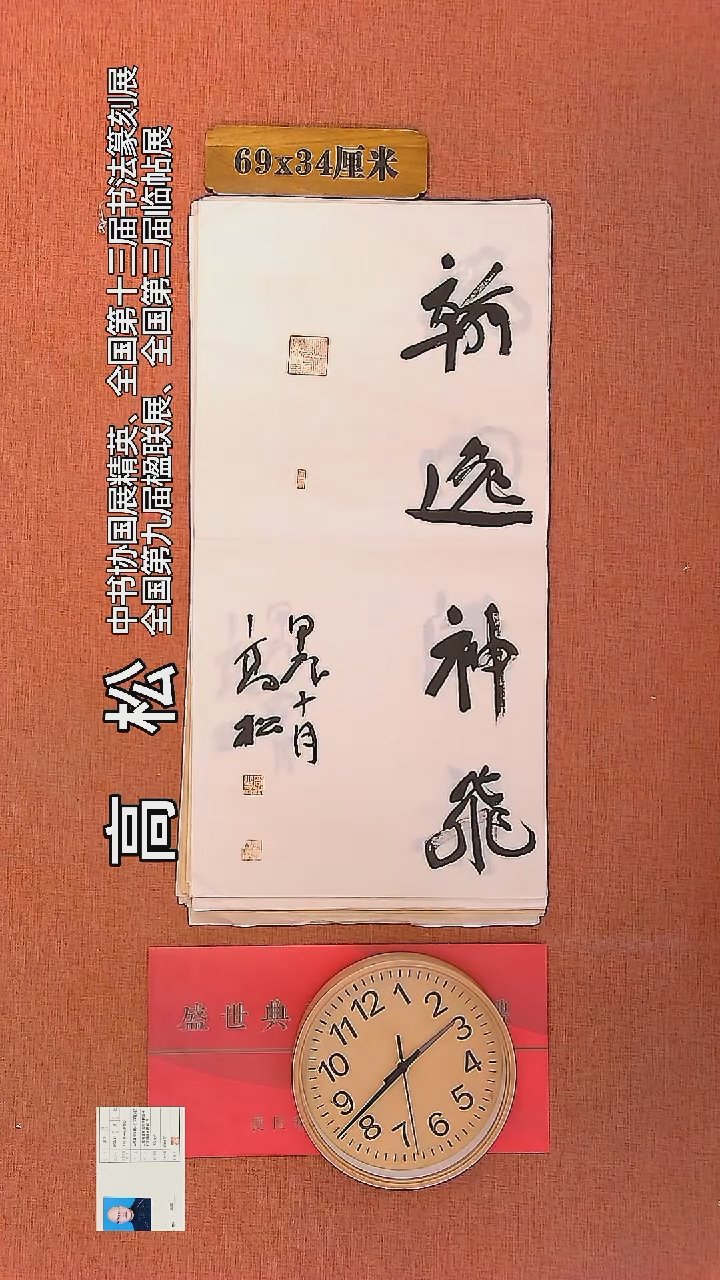 69x34厘米
翰
逸
神
飛
甲辰十月
高松
高 松
中书协国展精英、全国第十三届书法篆刻展
全国第九届楹联展、全国第三届临帖展
盛世典
12
1
2
3
4
5
6
7
8
9
10
11